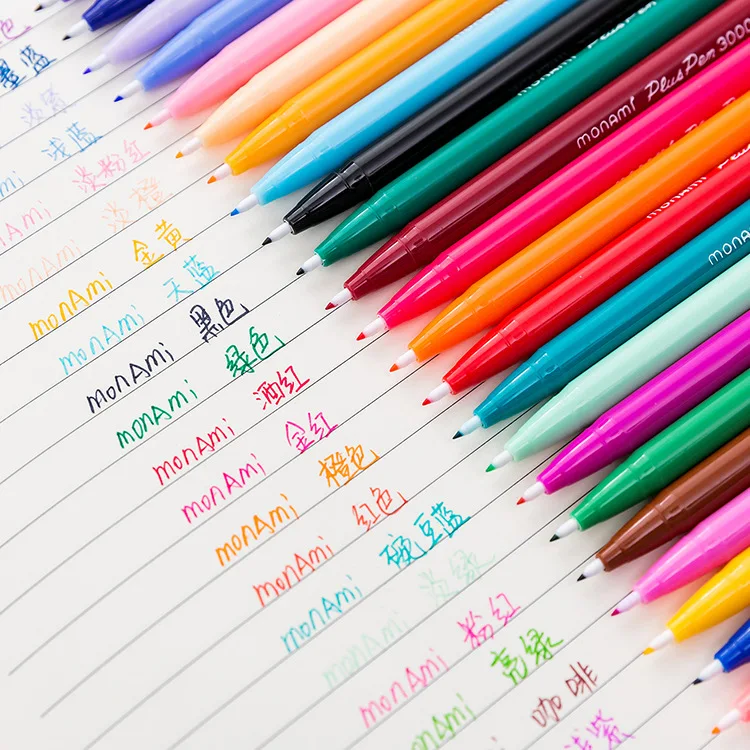 色
墨蓝
淡紫
浅蓝
Ami 淡粉红
nAmi 淡橙
monAmi 金黄
monAmi 天蓝
monAmi 黑色
monAmi 绿色
monAmi 酒红
monAmi 金红
monAmi 橙色
monAmi 红色
monAmi 硬豆蓝
monAmi 淡绿
monAmi 粉红
monAmi 亮绿
咖啡
浅紫
monami
monami Plus Pen 3000
monami
monami Plus
monami